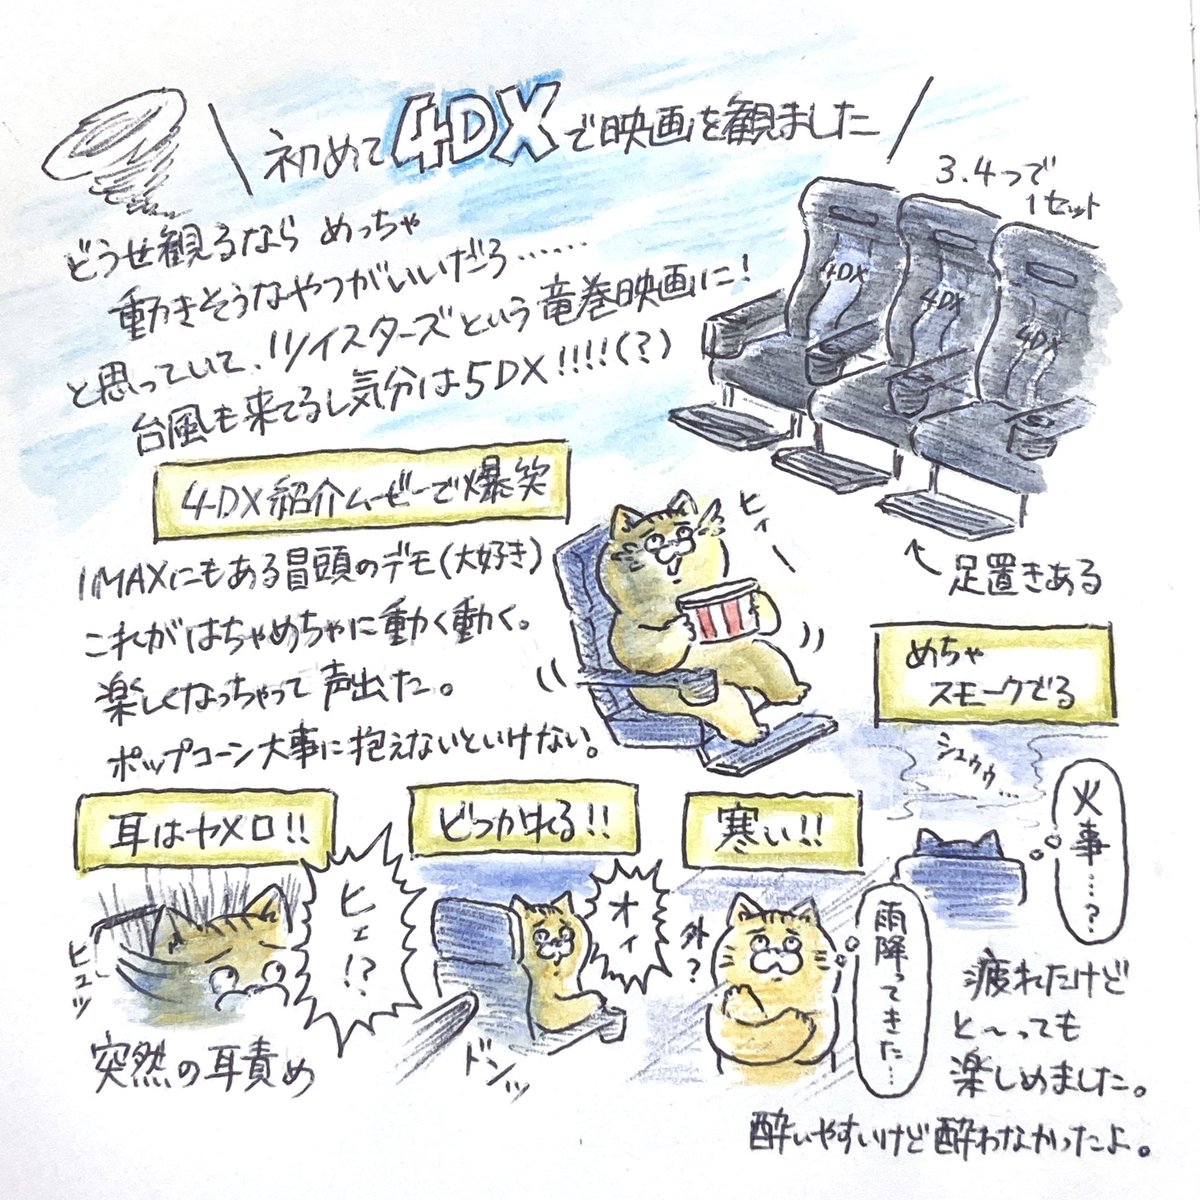 初めて4DXで映画を観ました
どうせ観るなら めっちゃ
動きそうなやつがいいだろ……
と思っていて、ツイスターズという竜巻映画に!
台風も来てるし気分は5DX!!!!(?)
3.4つで
1セット
4DX
4DX
4DX
足置きある
4DX紹介ムービーで爆笑
IMAXにもある冒頭のデモ(大好き)
これがはちゃめちゃに動く動く。
楽しくなっちゃって声出た。
ポップコーン大事に抱えないといけない。
ヒィー
めちゃ
スモークでる
シュゥゥ…
火事……?
耳はヤメロ!!
ヒュッ
ヒェ!?
突然の耳責め
どつかれる!!
オイ
ドンッ
寒い!!
外?
雨降ってきた…
疲れたけど
と〜っても
楽しめました。
酔いやすいけど酔わなかったよ。